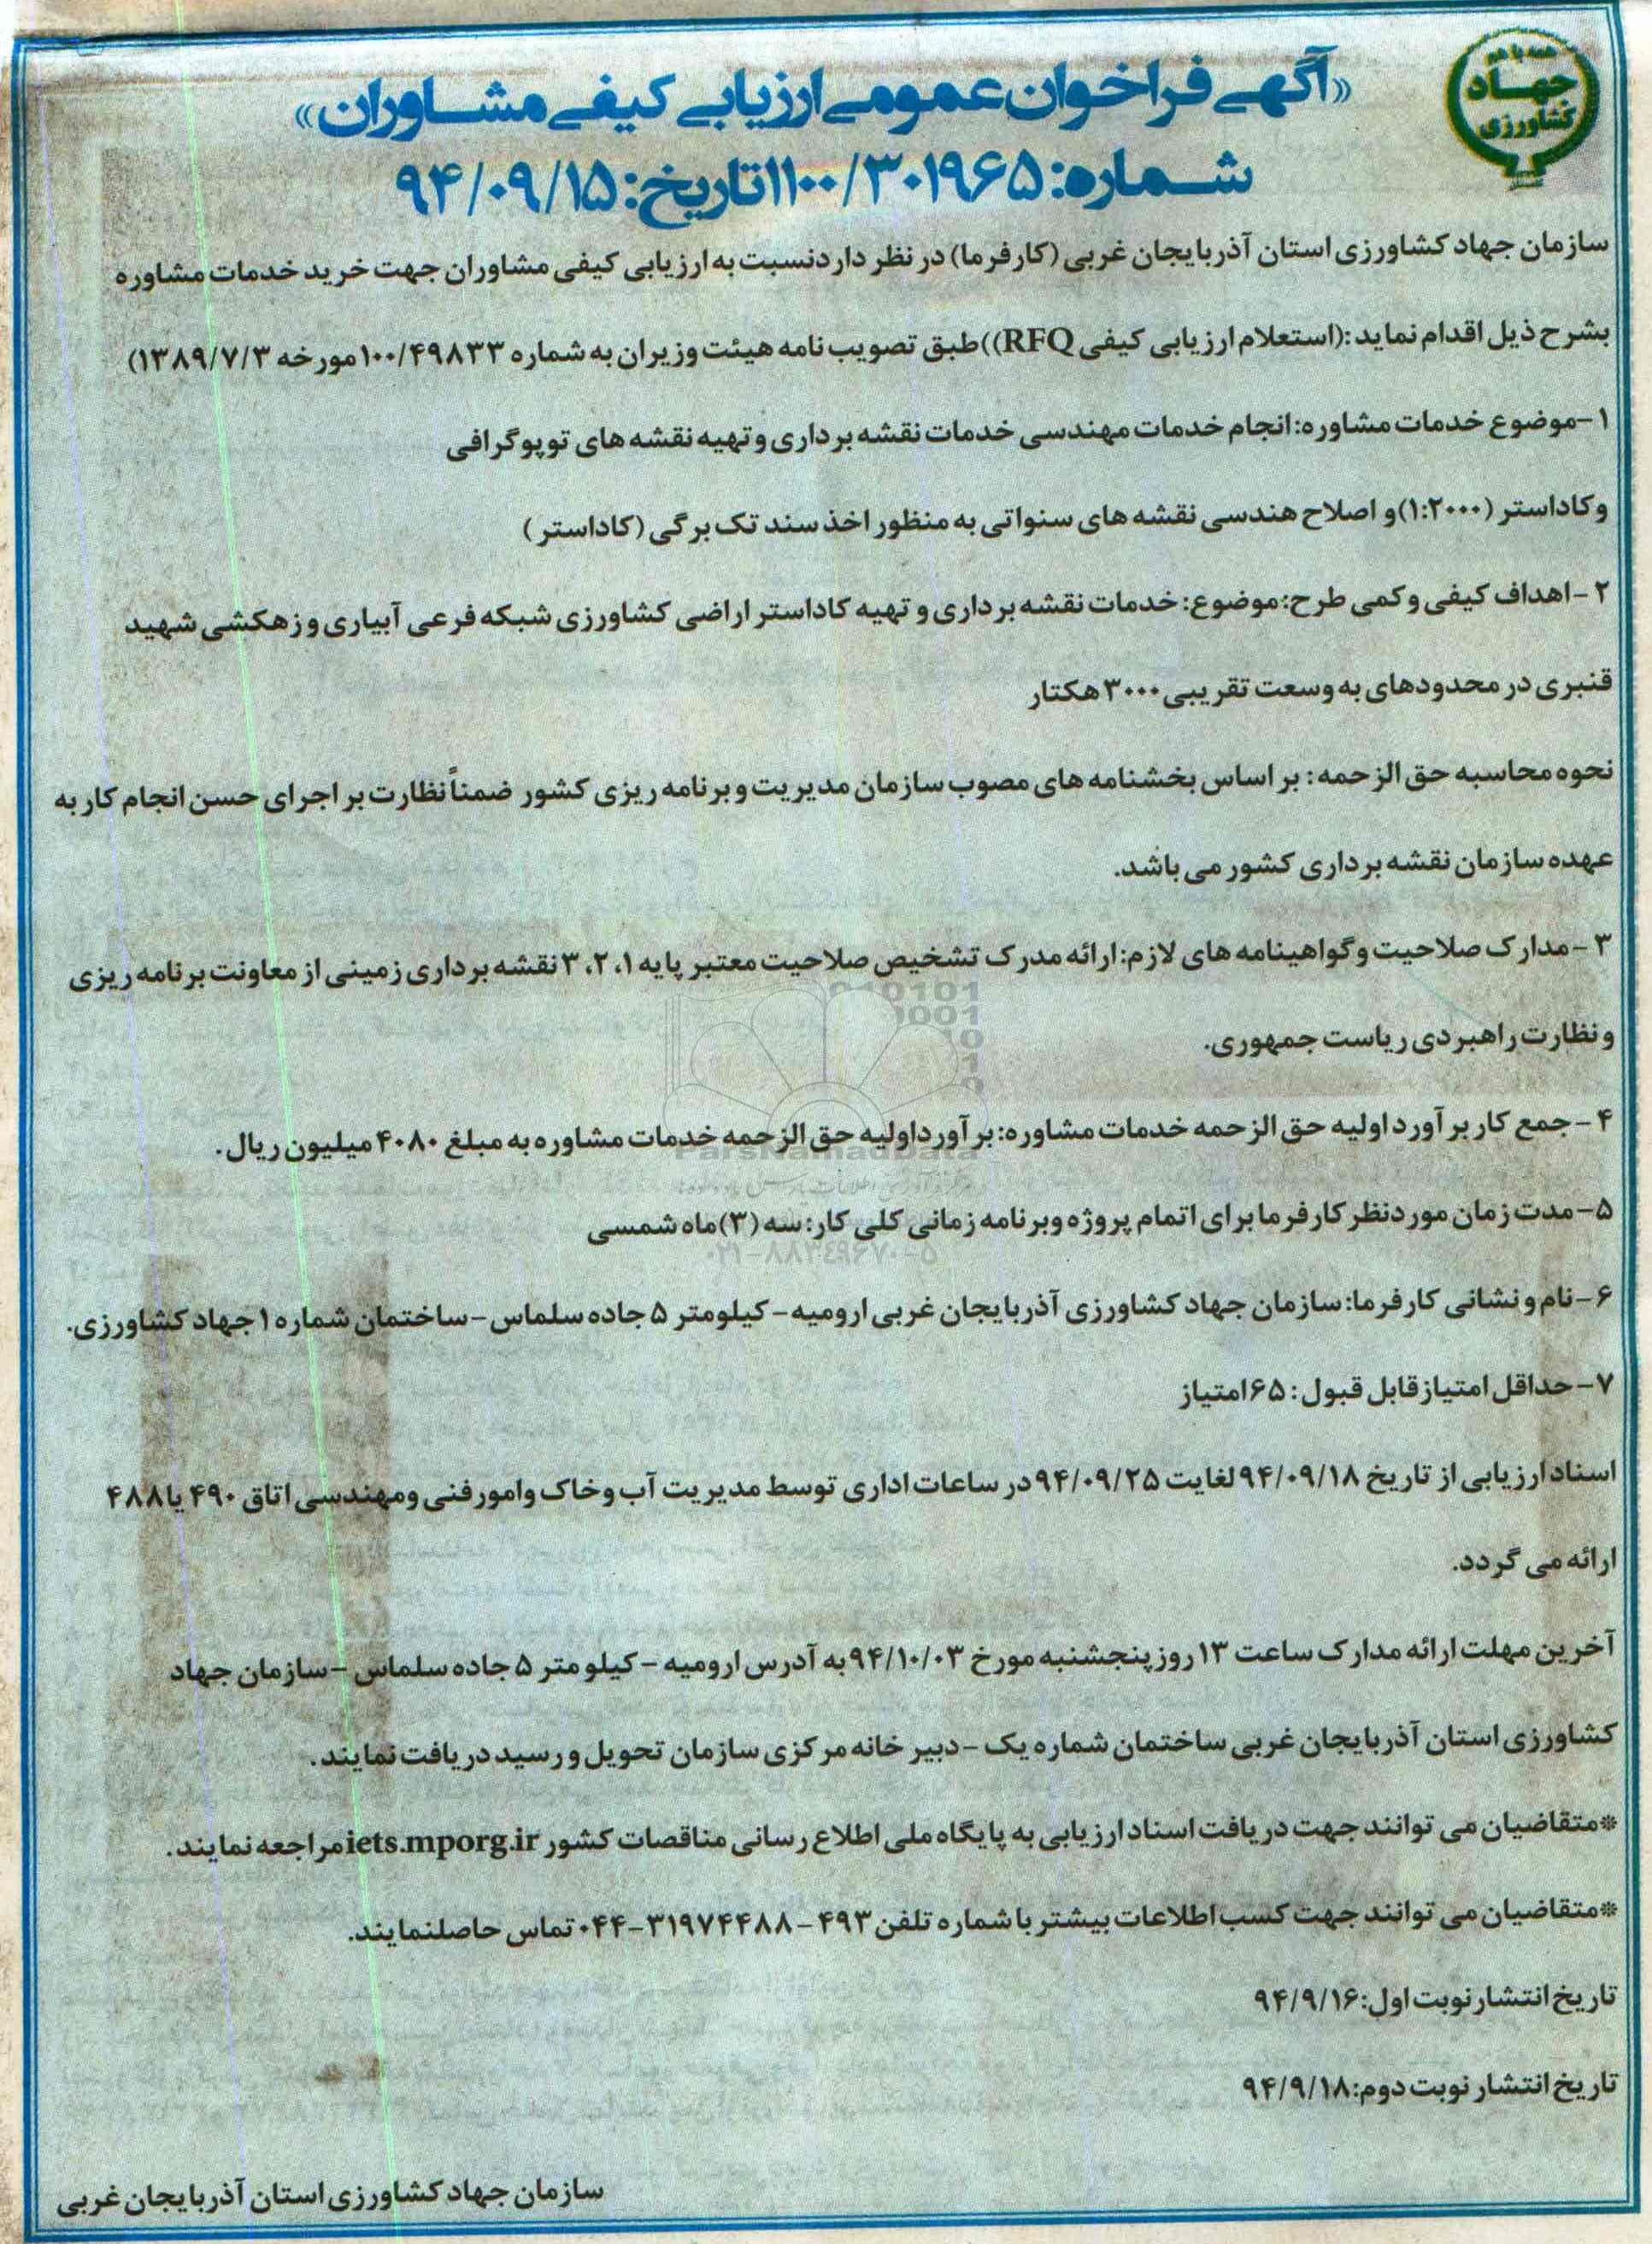 همه با هم
جهاد
کشاورزی
«آگهی فراخوان عمومی ارزیابی کیفی مشاوران»
شماره: ۱۱۰۰/۳۰۱۹۶۵ تاریخ: ۹۴/۰۹/۱۵
سازمان جهاد کشاورزی استان آذربایجان غربی (کارفرما) در نظر دارد نسبت به ارزیابی کیفی مشاوران جهت خرید خدمات مشاوره
بشرح ذیل اقدام نماید: (استعلام ارزیابی کیفی RFQ)) طبق تصویب نامه هیئت وزیران به شماره ۱۰۰/۴۹۸۳۳ مورخه ۱۳۸۹/۷/۳)
۱-موضوع خدمات مشاوره: انجام خدمات مهندسی خدمات نقشه برداری و تهیه نقشه های توپوگرافی
و کاداستر (۱:۲۰۰۰) و اصلاح هندسی نقشه های سنواتی به منظور اخذ سند تک برگی (کاداستر )
۲-اهداف کیفی و کمی طرح: موضوع: خدمات نقشه برداری و تهیه کاداستر اراضی کشاورزی شبکه فرعی آبیاری و زهکشی شهید
قنبری در محدودهای به وسعت تقریبی ۳۰۰۰ هکتار
نحوه محاسبه حق الزحمه : بر اساس بخشنامه های مصوب سازمان مدیریت و برنامه ریزی کشور ضمناً نظارت بر اجرای حسن انجام کار به
عهده سازمان نقشه برداری کشور می باشد.
۳-مدارک صلاحیت و گواهینامه های لازم: ارائه مدرک تشخیص صلاحیت معتبر پایه ۱، ۲، ۳ نقشه برداری زمینی از معاونت برنامه ریزی
و نظارت راهبردی ریاست جمهوری.
۴-جمع کار برآورد اولیه حق الزحمه خدمات مشاوره: برآورد اولیه حق الزحمه خدمات مشاوره به مبلغ ۴۰۸۰ میلیون ریال.
ParsNamadData
۵-مدت زمان مورد نظر کارفرما برای اتمام پروژه و برنامه زمانی کلی کار: سه (۳) ماه شمسی
۰۲۱-۸۸۳۴۹۶۷۰-۵
۶-نام و نشانی کارفرما: سازمان جهاد کشاورزی آذربایجان غربی ارومیه-کیلومتر ۵ جاده سلماس-ساختمان شماره ۱ جهاد کشاورزی.
۷-حداقل امتیاز قابل قبول : ۶۵ امتیاز
اسناد ارزیابی از تاریخ ۹۴/۰۹/۱۸ لغایت ۹۴/۰۹/۲۵ در ساعات اداری توسط مدیریت آب و خاک و امور فنی و مهندسی اتاق ۴۹۰ یا ۴۸۸
ارائه می گردد.
آخرین مهلت ارائه مدارک ساعت ۱۳ روز پنجشنبه مورخ ۹۴/۱۰/۰۳ به آدرس ارومیه -کیلومتر ۵ جاده سلماس -سازمان جهاد
کشاورزی استان آذربایجان غربی ساختمان شماره یک -دبیر خانه مرکزی سازمان تحویل و رسید دریافت نمایند.
*متقاضیان می توانند جهت دریافت اسناد ارزیابی به پایگاه ملی اطلاع رسانی مناقصات کشور iets.mporg.ir مراجعه نمایند.
*متقاضیان می توانند جهت کسب اطلاعات بیشتر با شماره تلفن ۴۹۳-۳۱۹۷۴۴۸۸-۰۴۴ تماس حاصلنمایند.
تاریخ انتشار نوبت اول: ۹۴/۹/۱۶
تاریخ انتشار نوبت دوم: ۹۴/۹/۱۸
سازمان جهاد کشاورزی استان آذربایجان غربی